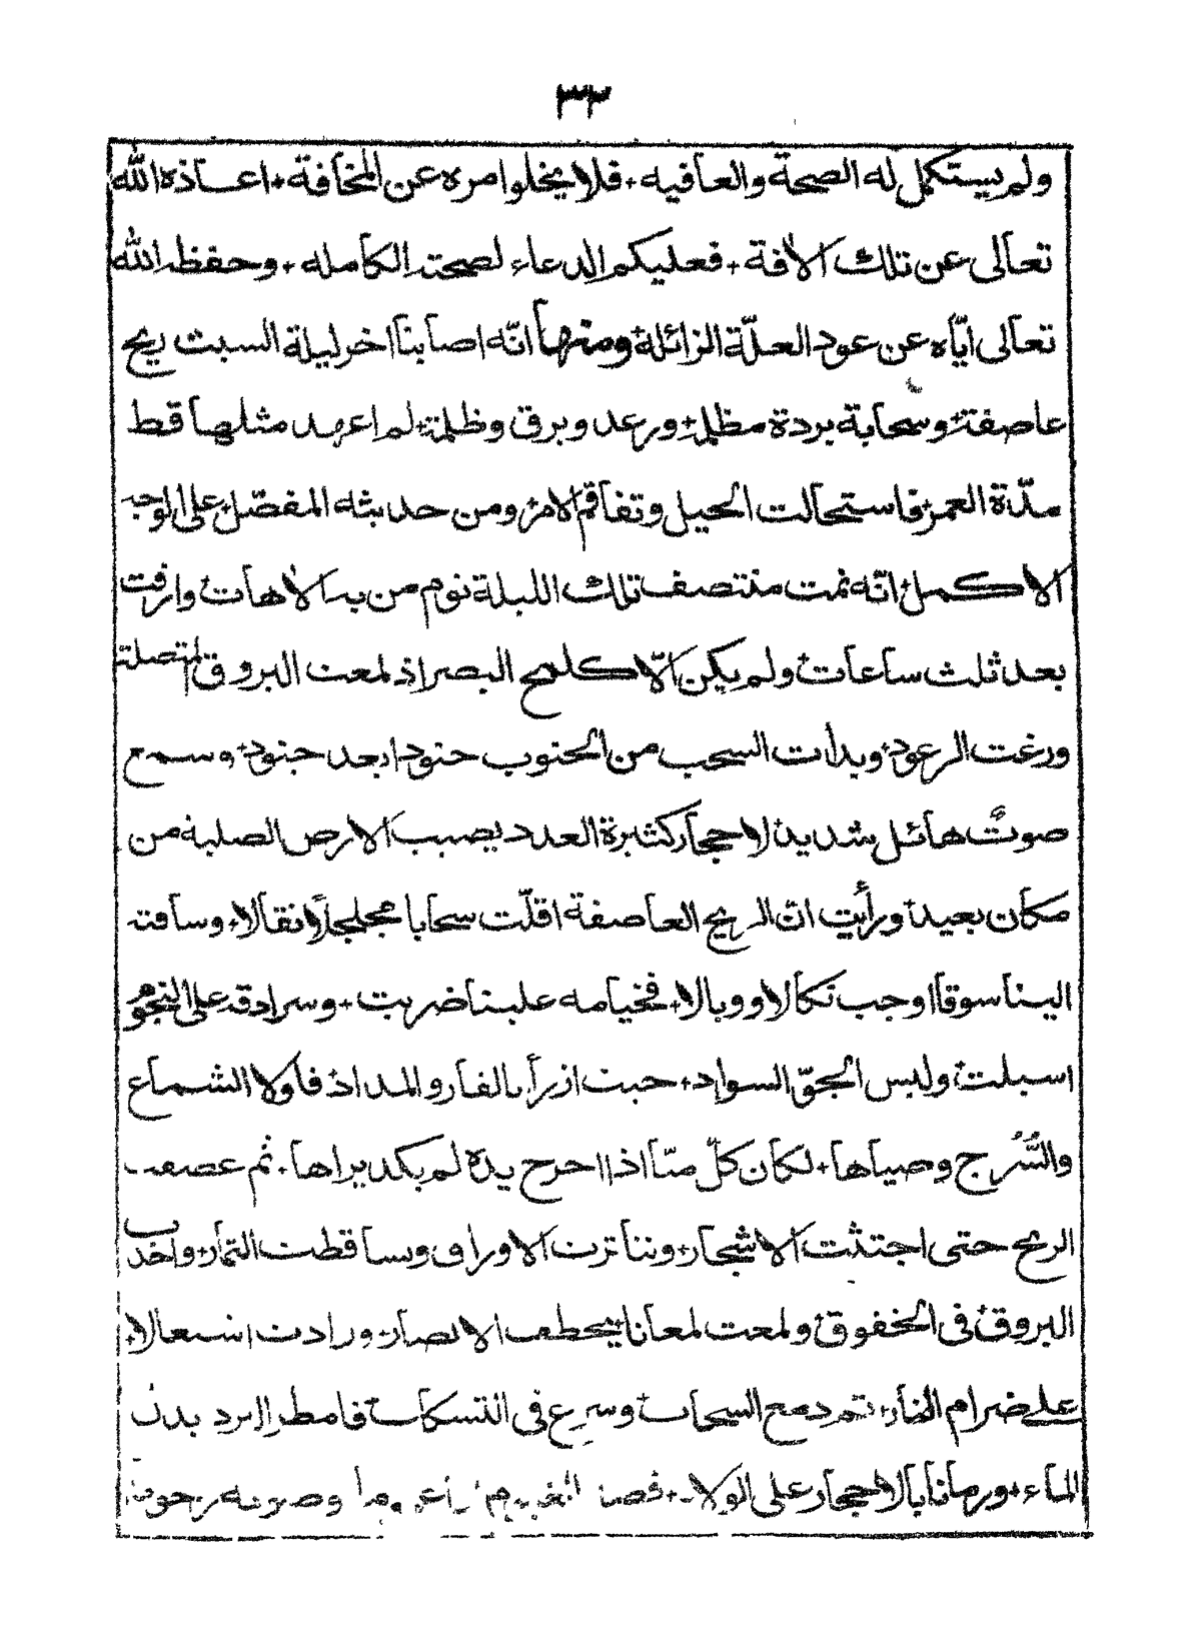 ٣٢
ولم يستكمل له الصحة والعافيه + فلا يخلوا مره عن المخافة + اعاذه الله
تعالى عن تلك الافة + فعليكم الدعاء لصحته الكامله + وحفظه الله
تعالى ايّاه عن عود العلّة الزائلة + ومنها انّه اصابنا اخر ليلة السبت ريح
عاصفة + وسحابة بردة مظلمة + ورعد وبرق وظلمة + لم اعهد مثلها قط
مدّة العمر + فاستحالت الحيل وتفاقم الامر + ومن حديثه المفصّل + على الوجه
الاكمل + انّه نمت منتصف تلك الليلة نوم من به الاهات + وارقت
بعد ثلث ساعات + ولم يكن الّا كلمح البصر اذ لمعت البروق المتصلة
ورغت الرعود + وبدات السحب من الجنوب جنودا بعد جنود + وسمع
صوتٌ هائل شديد + لاحجار كثيرة العدد يصبب الارض الصلبة من
مكان بعيد + ورأيت انّ الريح العاصفة اقلّت سحابا مجلجلًا ثقالا + وساقته
الينا سوقا اوجب نكالا ووبالا + فخيامه علينا ضربت + وسرادقه على النجوم
اسبلت + ولبس الجوّ السواد + حيث ازرأ بالقار والمداد + فلولا الشماع
والسُّرُج وضياها + لكان كلّ منّا اذا اخرج يده لم يكد يراها + ثم عصفت
الريح حتى اجتثت الاشجار + وتناثرت الاوراق وتساقطت الثمار + واخذت
البروق في الخفوق + ولمعت لمعانا يخطف الابصار + وزادت اشتعالا
على ضرام النار + ثم دمع السحاب + وسرع في التسكاب + فامطر البرد بدل
الماء + ورمانا بالاحجار على الولاء +